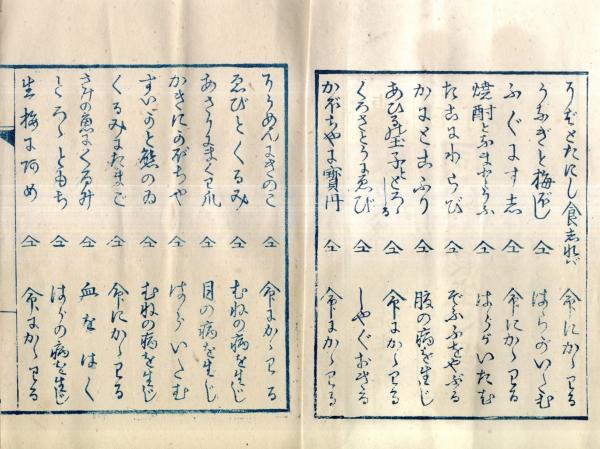 そばとたにし食 命にかゝわる
うなぎと梅ぼし 仝 はらがいたむ
ふぐにす志 仝 命にかゝわる
焼酎と 仝 はらがいたむ
たこにわらび 仝 ぞふふをやぶる
かにとこふり 仝 腹の病を生じ
あひる玉子ととろゝしる 仝 命にかゝわる
くろさとうにゑび 仝 しやくおきる
かぼちやに寶丹 仝 命にかゝわる
そうめんにきのこ 仝 命にかゝわる
ゑびとくるみ 仝 むねの病を生じ
あさりにまくわ瓜 仝 目の病を生じ
かきにかぼちや 仝 はらいたむ
すいかと熊のゐ 仝 むねの病を生じ
くるみにたまご 仝 命にかゝわる
さめの魚にくるみ 仝 血をはく
とろゝともち 仝 はらの病を生じ
生梅にあめ 仝 命にかゝわる